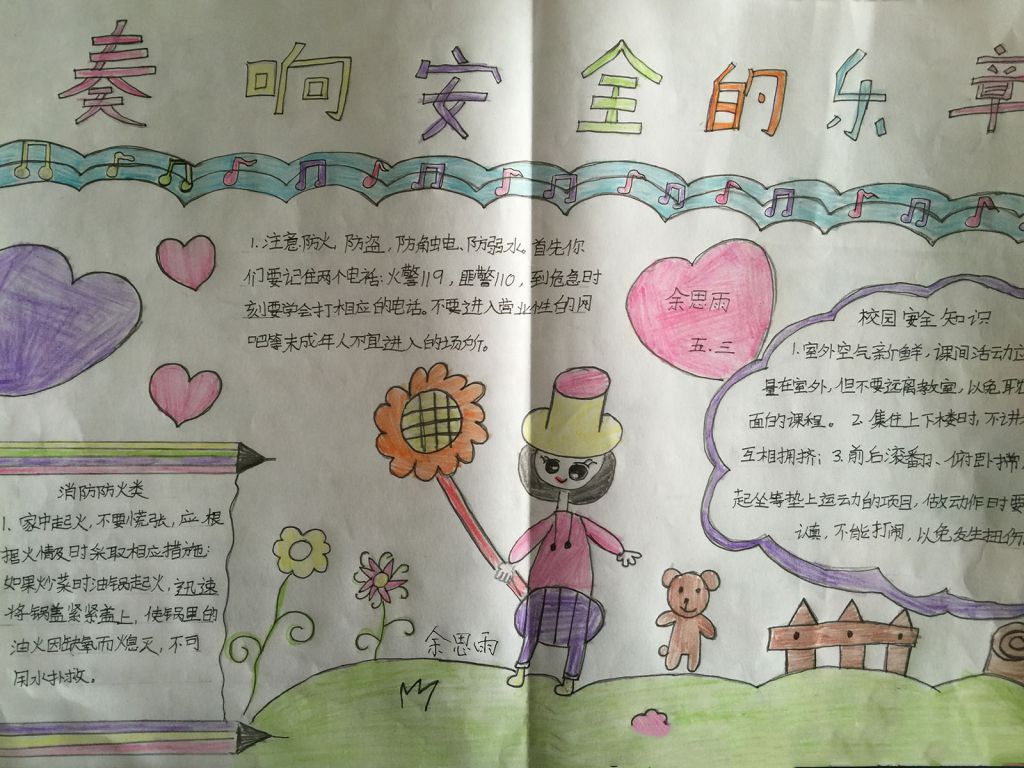 奏响安全的乐章
1.注意防火,防盗,防触电、防弱水。首先你
们要记住两个电话:火警119,匪警110,到危急时
刻要学会打相应的电话。不要进入营业性的网
吧等末成年人不宜进入的场所。
余思雨
五.三
校园安全知识
1.室外空气新鲜,课间活动应
量在室外,但不要远离教室,以免耽
面的课程。2.集体上下楼时,不讲
互相拥挤;3.前后滚翻、俯卧撑,
起坐等垫上运动的项目,做动作时要
认真,不能打闹,以免发生扭伤
消防防火类
1、家中起火,不要慌张,应根
据火情及时采取相应措施:
如果炒菜时油锅起火,迅速
将锅盖紧紧盖上,使锅里的
油火因缺氧而熄灭,不可
用水扑救。
余思雨